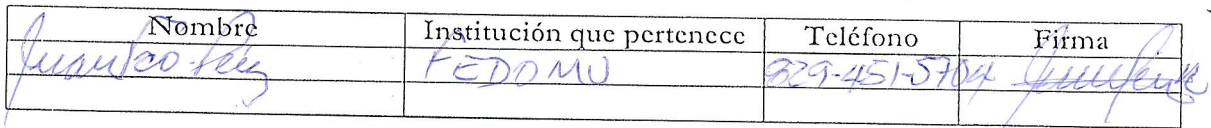 Nombre Institución que pertenece Teléfono Firma
Juan Fco. Pérez FEDOMU 829-451-5704